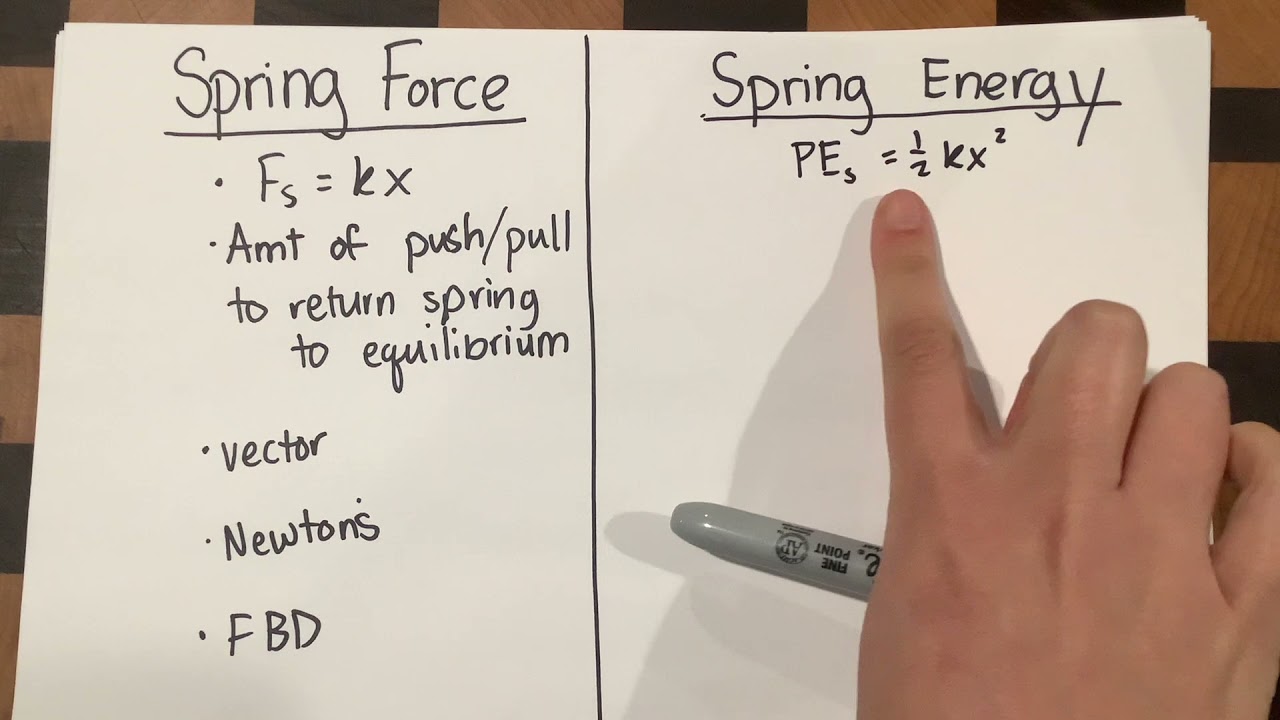 Spring Force
• Fs = kx
• Amt of push/pull
to return spring
to equilibrium
• vector
• Newton's
• FBD
Spring Energy
PEs = 1/2 kx²
FINE
POINT
AP